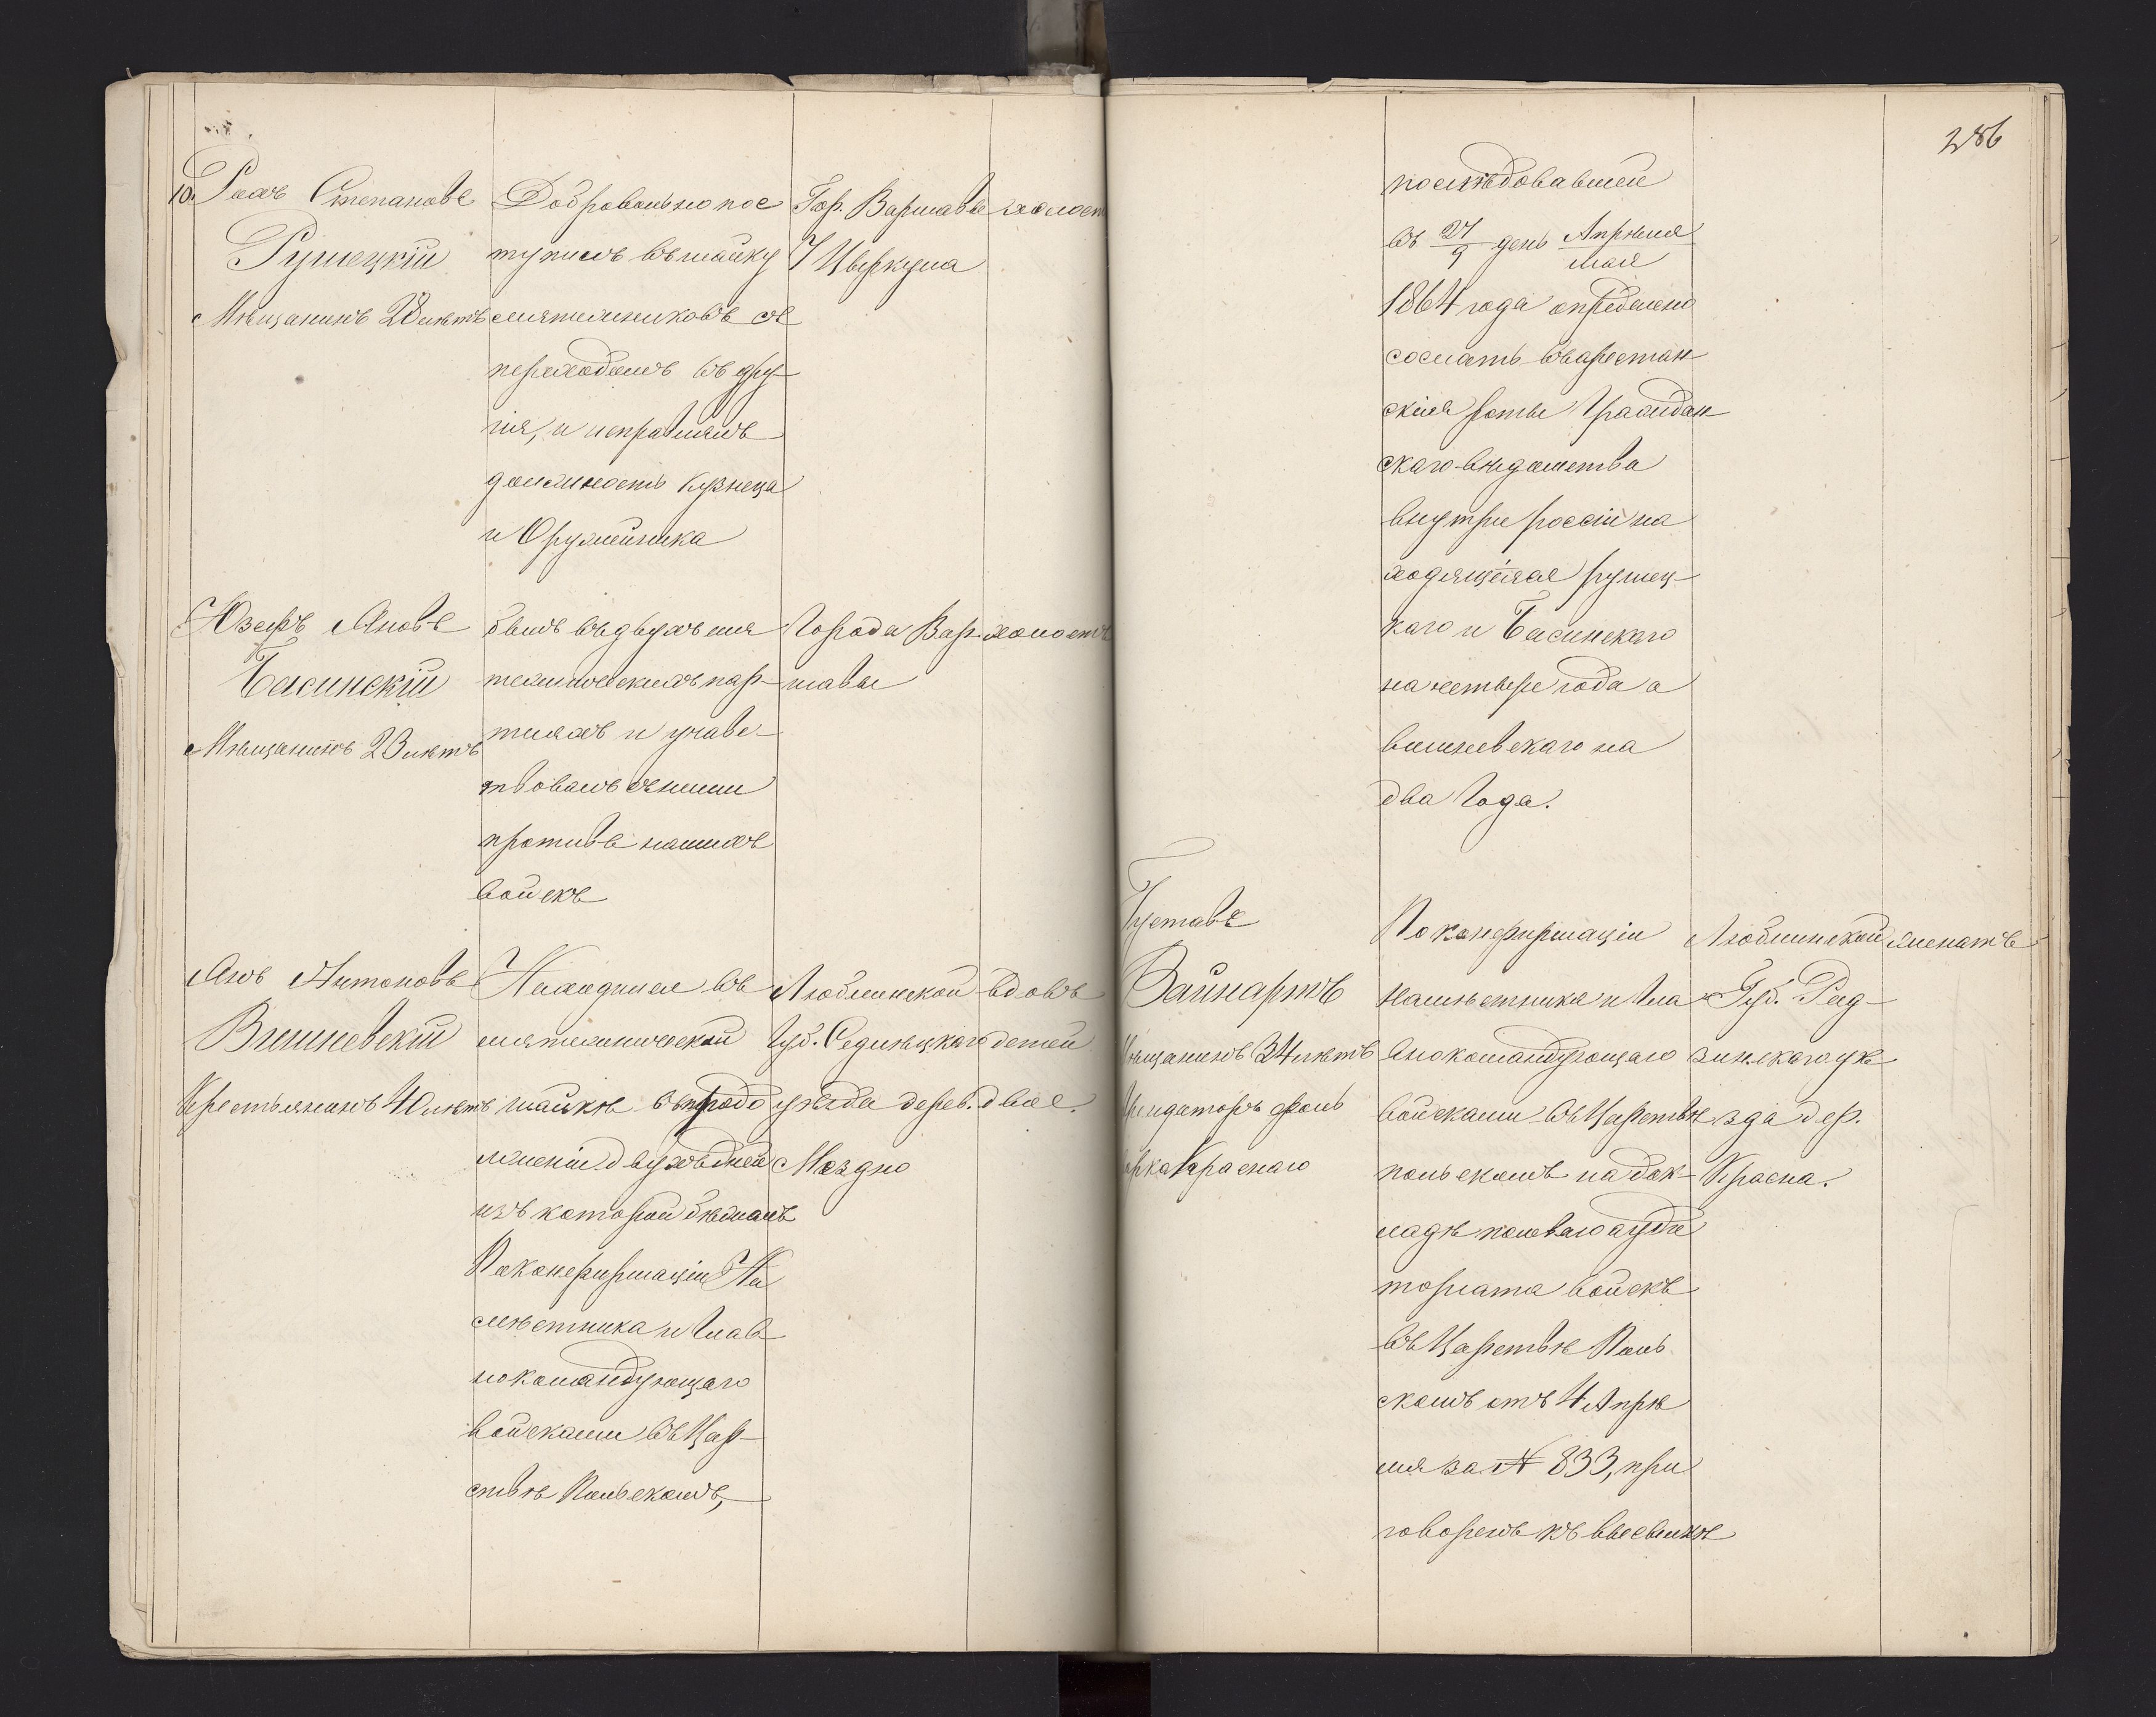 286
10. Рохъ Степановъ
Румецкій
Мѣщанинъ 28 лѣтъ
Добровольно пос
тупилъ въ шайку
мятежниковъ съ
переходомъ въ дру-
гія, и исправлялъ
должность кузнеца
и Оружейника
Гор. Варшавы
У Цыркула
холост
Юзефъ Яновъ
Басинскій
Мѣщанинъ 23 лѣтъ
былъ въ двухъ мя
тежническихъ пар-
тіяхъ и учавс-
твовалъ съ ними
противъ нашихъ
войскъ
Города Вар-
шавы
холостъ
Янъ Антоновъ
Вишневскій
Крестьянинъ 40 лѣтъ
Находился въ
мятежнической
шайкѣ въ продо
лженіи двухъ дней
изъ которой бѣжалъ
По конфирмаціи На
мѣстника и Глав
нокомандующаго
войсками въ Цар-
ствѣ Польскомъ,
Люблинской
Губ. Седлецкаго
уѣзда дерев.
Мездно
вдовъ
детей
двое.
послѣдовавшей
въ 27/9 день Апрѣля/мая
1864 года опредѣлено
сослать въ арестан
скія роты Граждан
скаго вѣдомства
внутри россіи на
ходящіяся румец-
каго и Басинскаго
на четыре года а
вишневскаго на
два года.
Густавъ
Вайнартъ
Мѣщанинъ 34 лѣтъ
Арендаторъ фоль
варка Краснаго
По конфирмаціи
намѣстника и Гла
внокомандующаго
войсками въ Царствѣ
польскомъ на док-
ладѣ полеваго ауди
торіата войскъ
въ Царствѣ Поль
скомъ отъ 4 Апрѣ
ля за № 833, при
говоренъ къ высылкѣ
Люблинской
Губ. Рад-
зинскаго уѣ
зда дер.
Красна.
женатъ